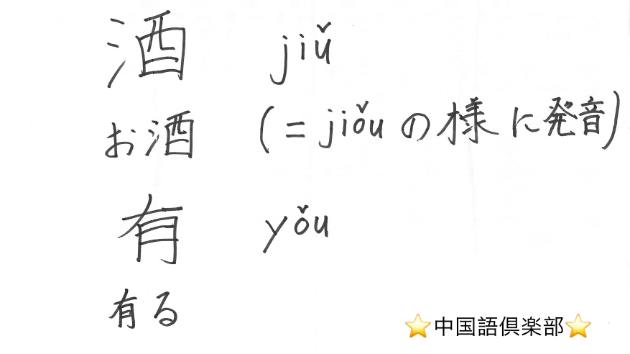 酒 jiǔ
お酒 (=jiǒuの様に発音)
有 yǒu
有る
⭐中国語倶楽部⭐